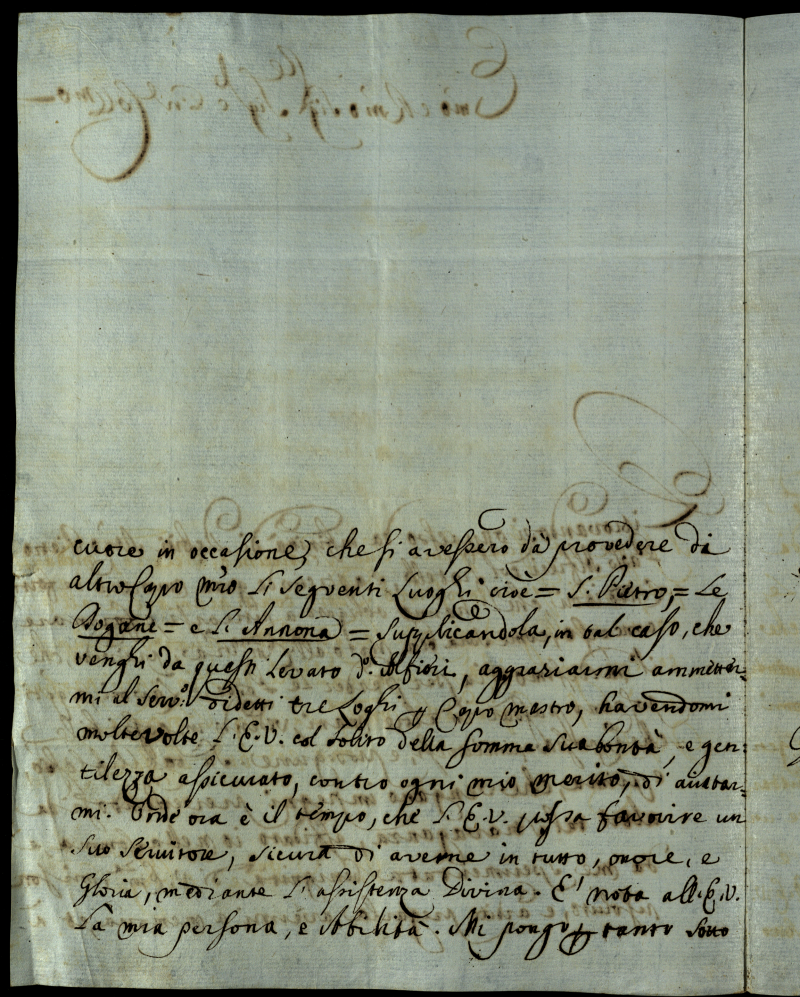 cuore in occasione, che si avessero da provedere di
altro Capo mro li seguenti Luoghi cioè = S. Pietro, = Le
Dogane = e l'Annona = Supplicandola, in tal caso, che
venghi da questi levato d.º Alfieri, aggraziarmi ammetter=
mi al serv.º di detti tre Loghi p Capo mastro, havendomi
moltevolte l'E.V. col solito della somma sua bontà, e gen=
tilezza assicurato, contro ogni mio merito, di aiutar=
mi. Onde ora è il tempo, che l'E.V. possa favorire un
suo servitore, sicura di averne in tutto, onore, e
Gloria, mediante l'assistenza Divina. E' nota all'E.V.
La mia persona, e Abilità. Mi pongo p tanto sotto